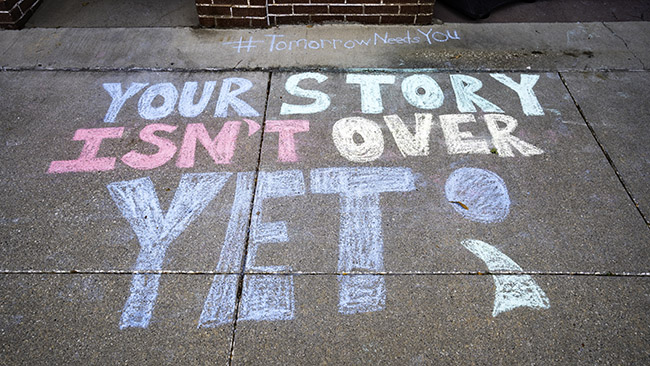 #TomorrowNeedsYou
YOUR STORY
ISN'T OVER
YET;